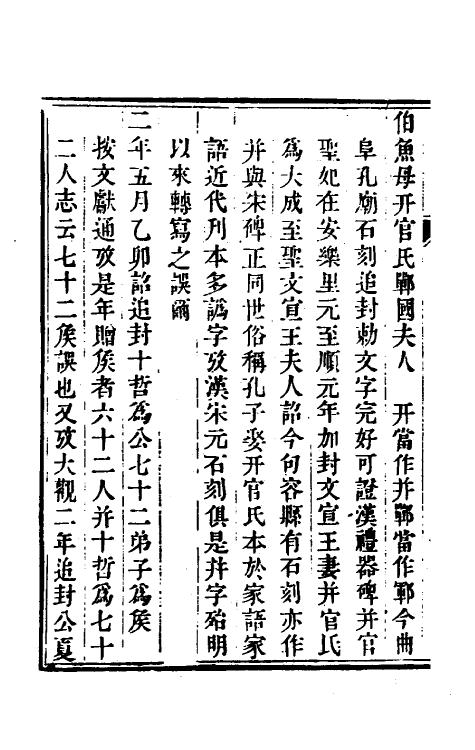 伯魚母开官氏鄆國夫人　开當作并鄆當作鄆今曲
阜孔廟石刻追封勅文字完好可證漢禮器碑并官
聖妃在安樂里元至順元年加封文宣王妻并官氏
爲大成至聖文宣王夫人詔今句容縣有石刻亦作
并與宋碑正同世俗稱孔子娶开官氏本於家語家
語近代刊本多譌字攷漢宋元石刻俱是并字殆明
以來轉寫之誤爾
二年五月乙卯詔追封十哲爲公七十二弟子爲矦
按文獻通攷是年贈矦者六十二人并十哲爲七十
二人志云七十二矦誤也又攷大觀二年追封公夏